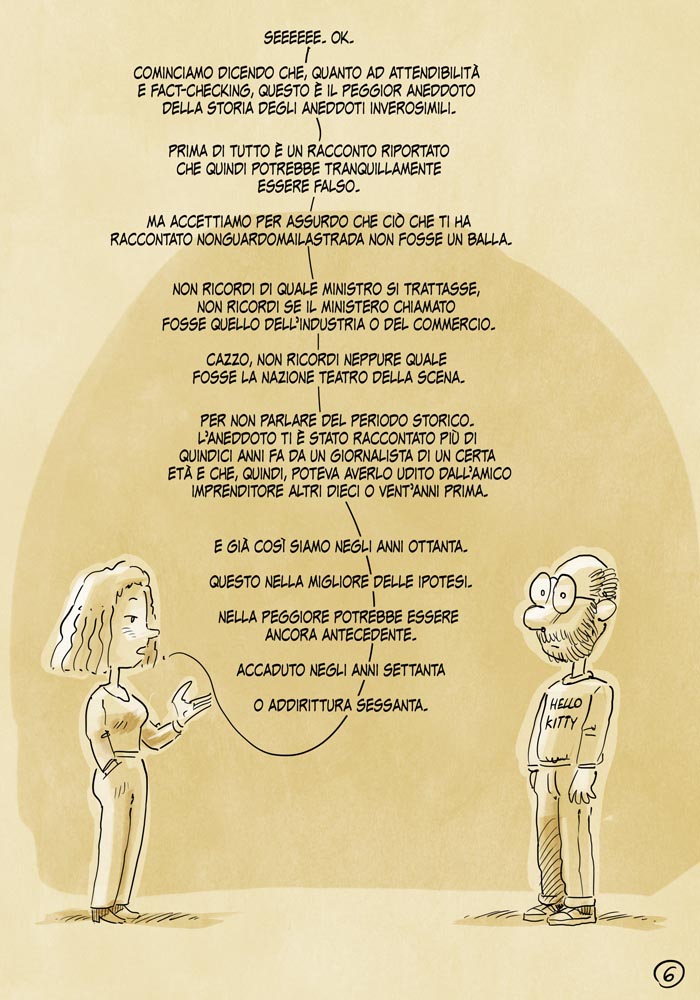 SEEEEEE. OK.
COMINCIAMO DICENDO CHE, QUANTO AD ATTENDIBILITÀ
E FACT-CHECKING, QUESTO È IL PEGGIOR ANEDDOTO
DELLA STORIA DEGLI ANEDDOTI INVEROSIMILI.
PRIMA DI TUTTO È UN RACCONTO RIPORTATO
CHE QUINDI POTREBBE TRANQUILLAMENTE
ESSERE FALSO.
MA ACCETTIAMO PER ASSURDO CHE CIÒ CHE TI HA
RACCONTATO NONGUARDOMAILASTRADA NON FOSSE UN BALLA.
NON RICORDI DI QUALE MINISTRO SI TRATTASSE,
NON RICORDI SE IL MINISTERO CHIAMATO
FOSSE QUELLO DELL'INDUSTRIA O DEL COMMERCIO.
CAZZO, NON RICORDI NEPPURE QUALE
FOSSE LA NAZIONE TEATRO DELLA SCENA.
PER NON PARLARE DEL PERIODO STORICO.
L'ANEDDOTO TI È STATO RACCONTATO PIÙ DI
QUINDICI ANNI FA DA UN GIORNALISTA DI UN CERTA
ETÀ E CHE, QUINDI, POTEVA AVERLO UDITO DALL'AMICO
IMPRENDITORE ALTRI DIECI O VENT'ANNI PRIMA.
E GIÀ COSÌ SIAMO NEGLI ANNI OTTANTA.
QUESTO NELLA MIGLIORE DELLE IPOTESI.
NELLA PEGGIORE POTREBBE ESSERE
ANCORA ANTECEDENTE.
ACCADUTO NEGLI ANNI SETTANTA
O ADDIRITTURA SESSANTA.
HELLO
KITTY
6